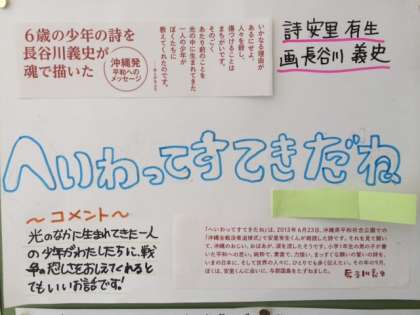 6歳の少年の詩を
長谷川義史が
魂で描いた
沖縄発
平和への
メッセージ
いかなる理由が
あるにせよ、
人々を殺し、
傷つけることは
まちがいです。
そのごく
あたり前のことを
光の中に生まれてきた
一人の少年が
ぼくたちに
教えてくれたのです。
詩 安里 有生
画 長谷川 義史
へいわってすてきだね
～コメント～
光のなかに生まれてきた一人
の少年がわたしたちに、戦
争の恐しさをおしえてくれると
てもいいお話です!
「へいわってすてきだね」は、2013年6月23日、沖縄県平和祈念公園での
「沖縄全戦没者追悼式」で安里有生くんが朗読した詩です。それを見て聞い
て、沖縄のおじい、おばあが、涙を流したそうです。小学1年生の男の子が書
いた平和への思い。純粋で、素直で、力強い、まっすぐな願いの篭いの詩を、
いまの日本に、そして世界の人々に、ひとりでも多く伝えたい。その年の9月、
ぼくは、安里くんに会いに、与那国島をたずねました。